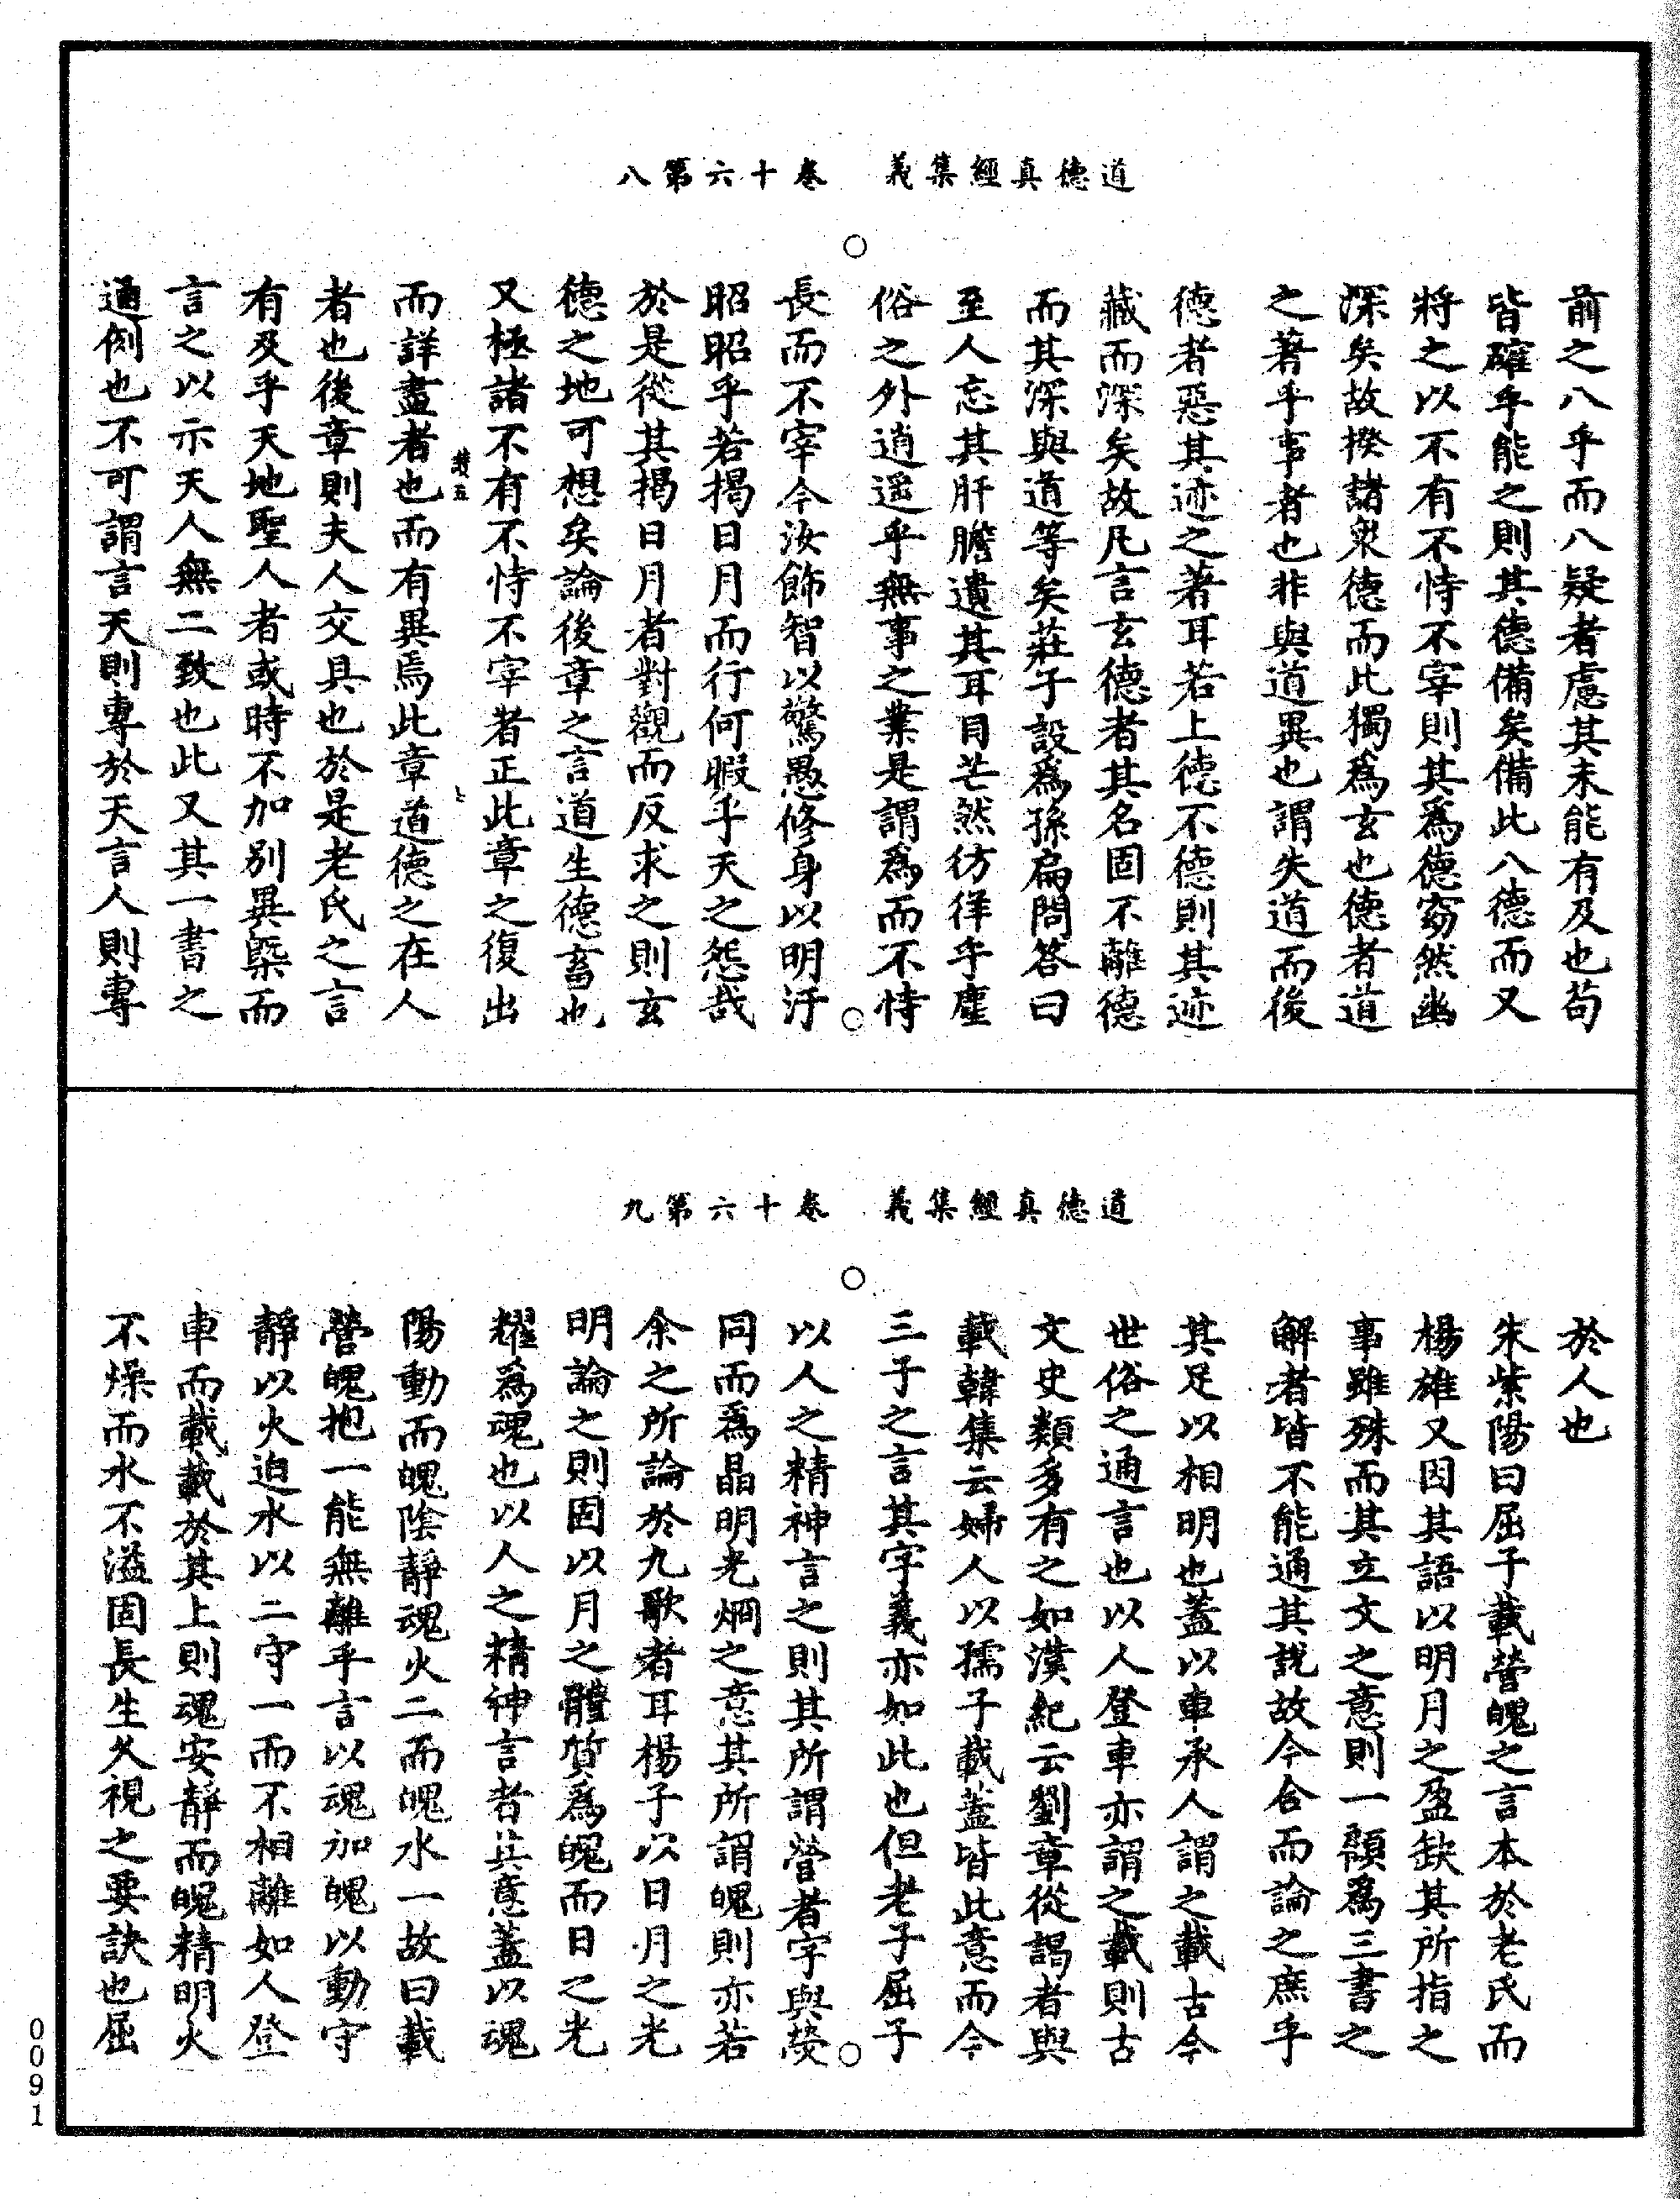 道德真經集義　卷十六第八
前之八乎而八疑者慮其未能有及也苟
皆確乎能之則其德備矣備此八德而又
將之以不有不恃不宰則其爲德窈然幽
深矣故揆諸衆德而此獨爲玄也德者道
之著乎事者也非與道異也謂失道而後
德者惡其迹之著耳若上德不德則其迹
藏而深矣故凡言玄德者其名固不離德
而其深與道等矣莊子設爲孫扁問答曰
至人忘其肝膽遺其耳目芒然彷徉乎塵
俗之外逍遥乎無事之業是謂爲而不恃
長而不宰今汝飾智以驚愚修身以明汙
昭昭乎若揭日月而行何暇乎天之怨哉
於是從其揭日月者對觀而反求之則玄
德之地可想矣論後章之言道生德畜也
又極諸不有不恃不宰者正此章之復出
而詳盡者也而有異焉此章道德之在人
者也後章則夫人交具也於是老氏之言
有及乎天地聖人者或時不加別異槩而
言之以示天人無二致也此又其一書之
通例也不可謂言天則專於天言人則專
道德真經集義　卷十六第九
於人也
朱紫陽曰屈子載營魄之言本於老氏而
楊雄又因其語以明月之盈缺其所指之
事雖殊而其立文之意則一顧爲三書之
解者皆不能通其說故今合而論之庶乎
其足以相明也蓋以車承人謂之載古今
世俗之通言也以人登車亦謂之載則古
文史類多有之如漢紀云劉章從謁者與
載韓集云婦人以孺子載蓋皆此意而今
三子之言其字義亦如此也但老子屈子
以人之精神言之則其所謂營者字與熒
同而爲晶明光炯之意其所謂魄則亦若
余之所論於九歌者耳楊子以日月之光
明論之則固以月之體質爲魄而日之光
耀爲魂也以人之精神言者其意蓋以魂
陽動而魄陰靜魂火二而魄水一故曰載
營魄抱一能無離乎言以魂加魄以動守
靜以火迫水以二守一而不相離如人登
車而載載於其上則魂安靜而魄精明火
不燥而水不溢固長生久視之要訣也屈
0091